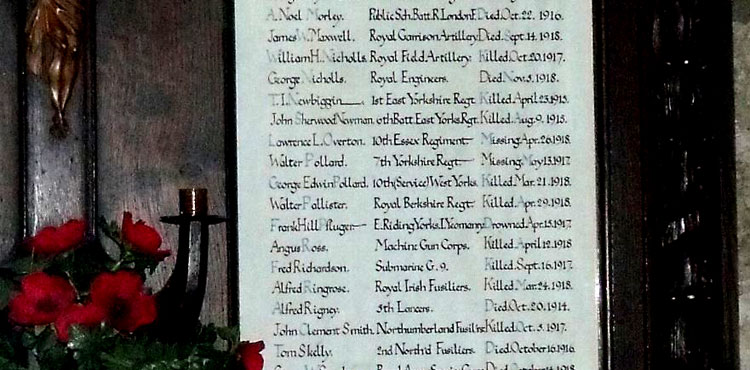 A. Noel Morley. Public Sch. Batt. R. London F. Died. Oct. 22. 1916.
James W. Maxwell. Royal Garrison Artillery. Died. Sept. 14. 1918.
William H. Nicholls. Royal Field Artillery. Killed. Oct. 20. 1917.
George Nicholls. Royal Engineers. Died. Nov. 5. 1918.
T. I. Newbiggin 1st East Yorkshire Regt. Killed. April 23. 1915.
John Sherwood Newman. 6th Batt. East Yorks. Rgt. Killed. Aug. 9. 1915.
Lawrence L. Overton. 10th Essex Regiment Missing. Apr. 26. 1918.
Walter Pollard. 7th Yorkshire Regt Missing. May 13. 1917
George Edwin Pollard. 10th (Service) West Yorks. Killed. Mar. 21. 1918.
Walter Pallister. Royal Berkshire Regt. Killed. Apr. 29. 1918.
Frank Hill Pfluger E. Riding Yorks. I. Yeomany Drowned. Apr. 15. 1917.
Angus Ross. Machine Gun Corps. Killed. April. 12. 1918
Fred Richardson. Submarine G. 9. Killed. Sept. 16. 1917.
Alfred Ringrose. Royal Irish Fusiliers. Killed. Mar. 24. 1918.
Alfred Rigney. 5th Lancers. Died. Oct. 20. 1914.
John Clement Smith. Northumberland Fusiliers Killed. Oct. 5. 1917.
Tom Skelly. 2nd North'd Fusiliers. Died. October 16. 1916.